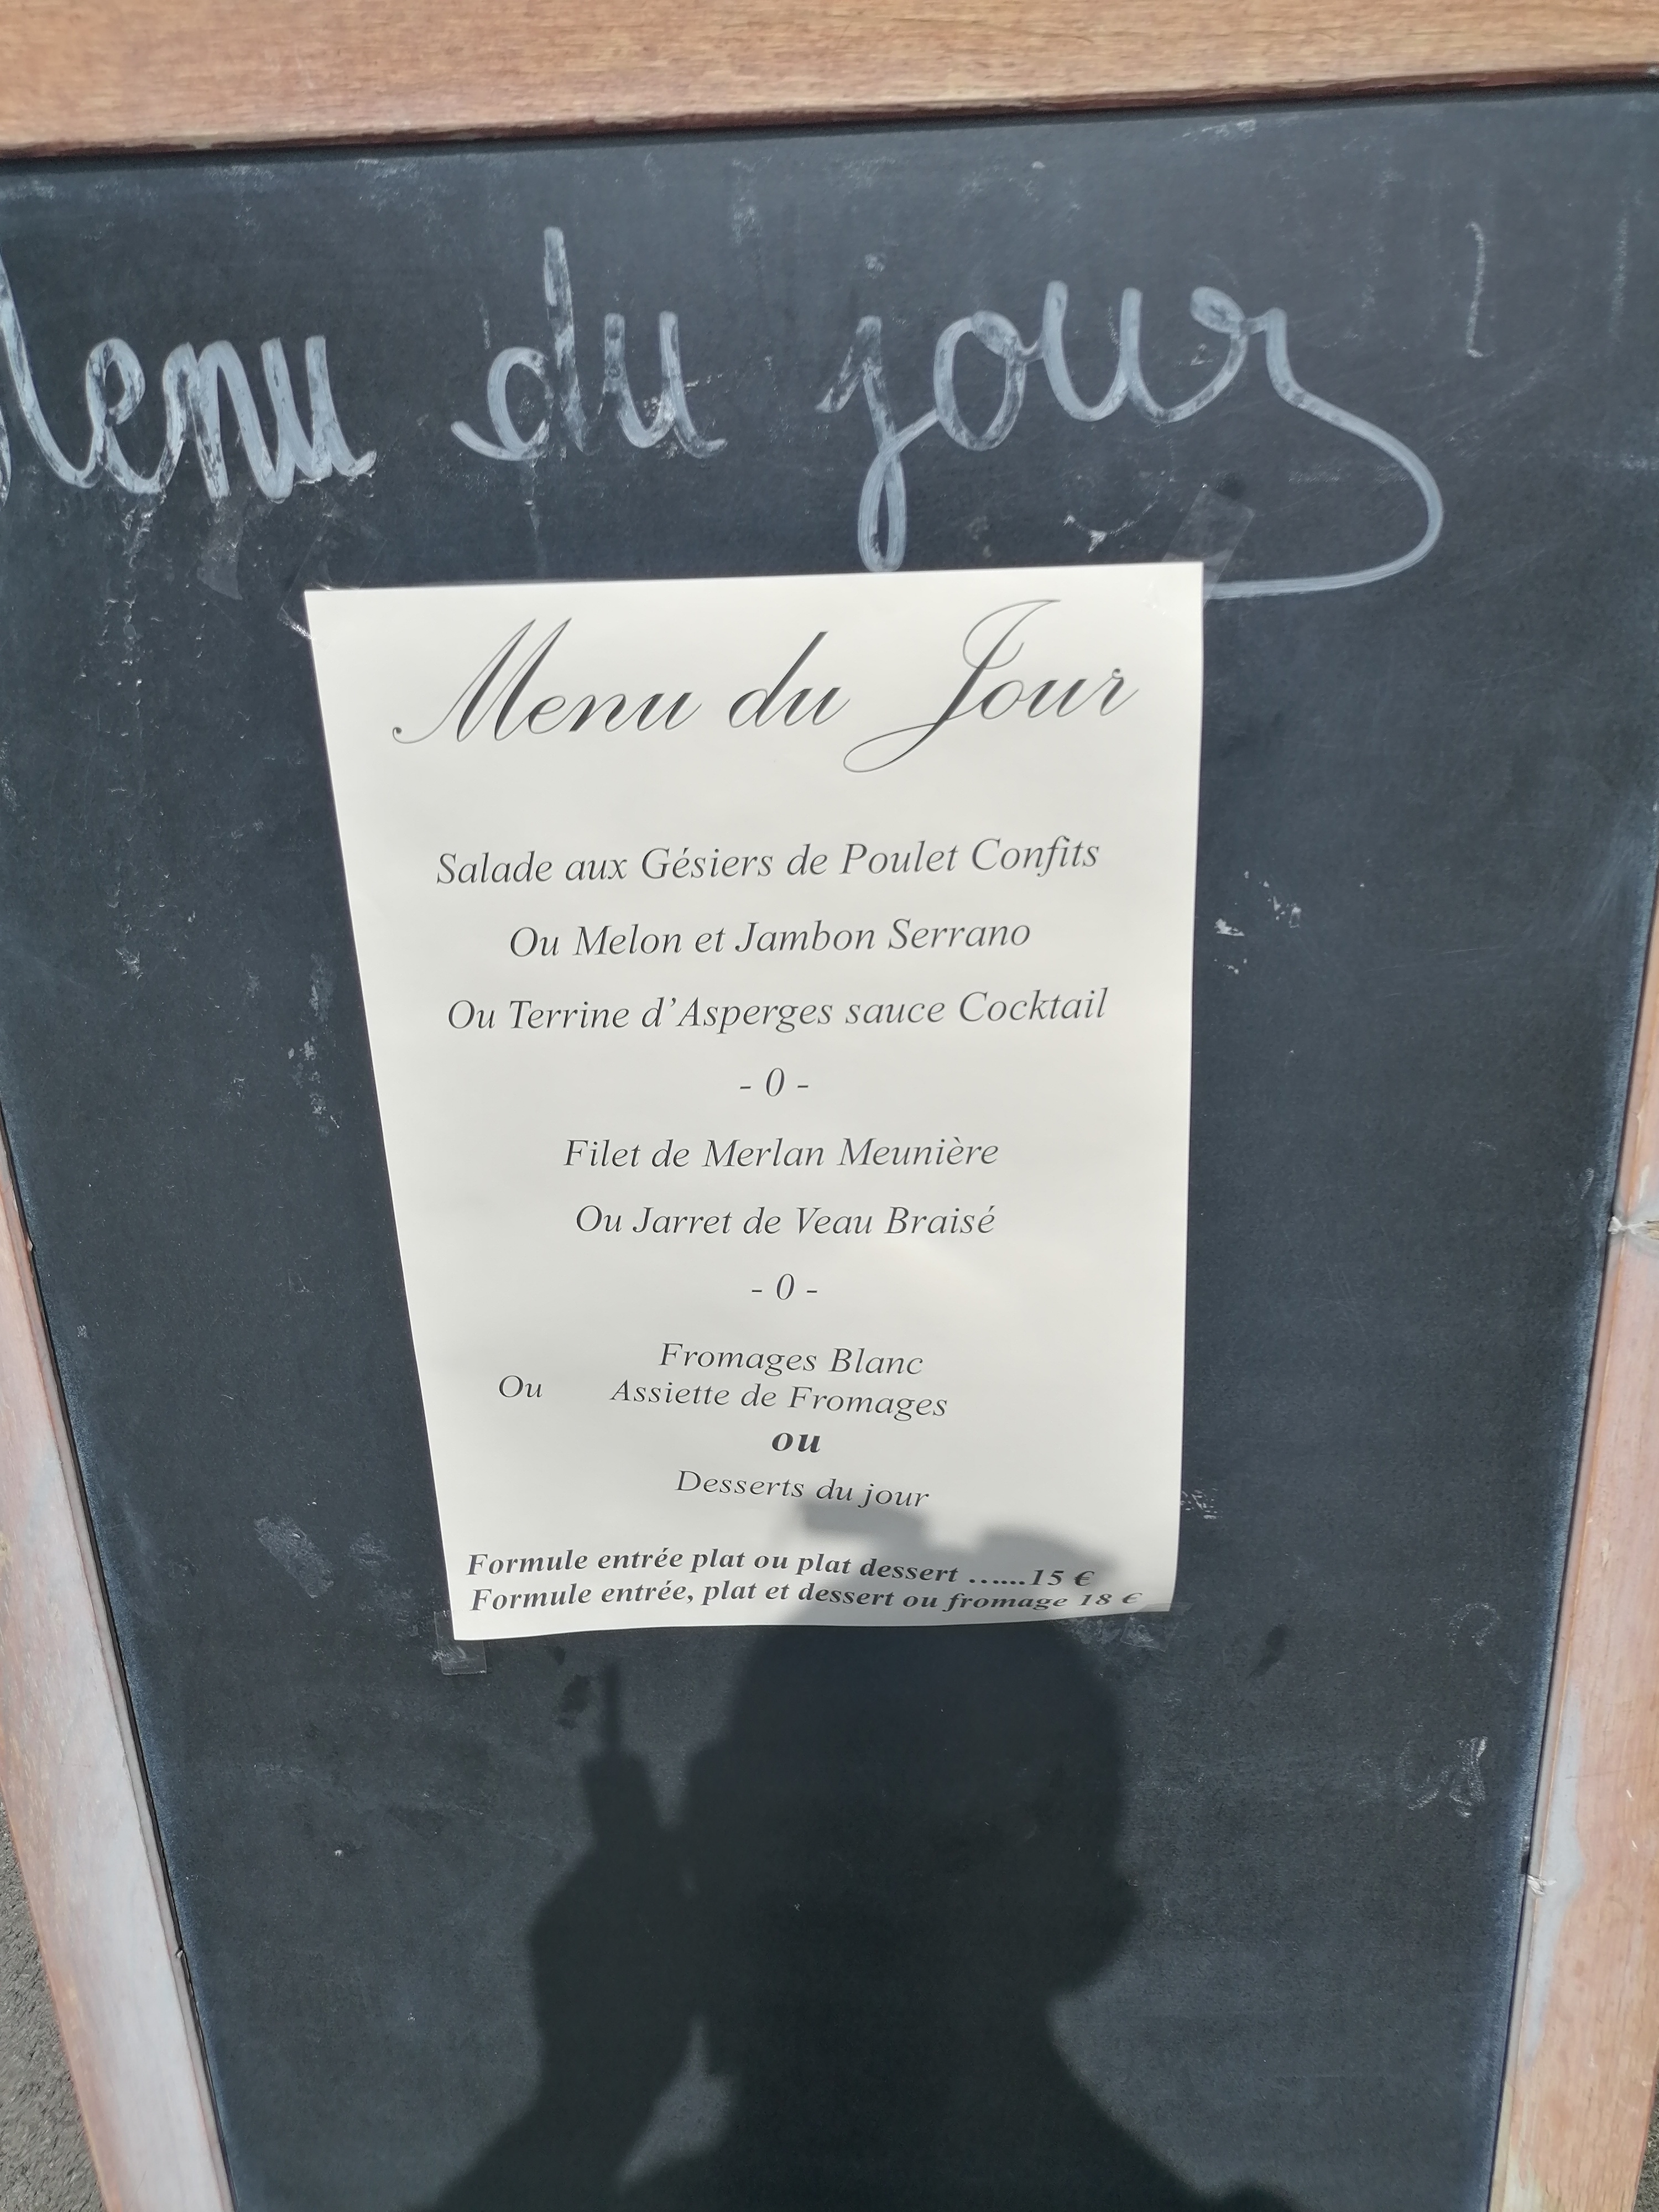 Menu du jour
Menu du Jour
Salade aux Gésiers de Poulet Confits
Ou Melon et Jambon Serrano
Ou Terrine d'Asperges sauce Cocktail
- 0 -
Filet de Merlan Meunière
Ou Jarret de Veau Braisé
- 0 -
Fromages Blanc
Ou Assiette de Fromages
ou
Desserts du jour
Formule entrée plat ou plat dessert …...15 €
Formule entrée, plat et dessert ou fromage 18 €